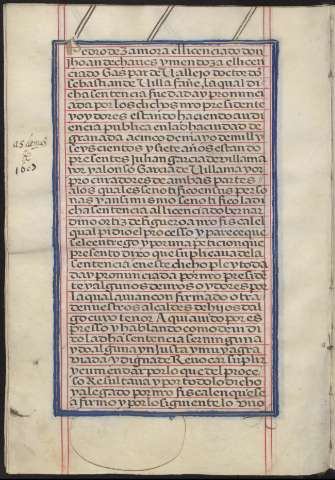 Pedro de Zamora el licenciado don
Jhoan de chaues y mendoza el licen
ciado Gaspar de Vallejo doctor dō
sebastian de Villa fañe, la qual di
cha sentencia fue dada y pronun
ciada por los dichos nro presidente
y oydores estando haciendo audi
encia publica en la bhciudad de
granada a cinco de mayo de mill y
seyscientos y siete años estando
presentes Julian garcia de villama
yor y alonso Garcia de Villama yor
procuradores de ambas partes
a los quales se notifico en sus perso
nas y ansimismo se notifico la di
cha sentencia al licenciado bernar
dino ortiz de figueroa nro fiscal el
qual pidio el processo y parece que
se le entrego y por una peticion que
presento dixo que suplicaua de la
sentencia en este dicho pleyto da
da y pronunciada por nro presidē
te y algunos de nros oydores por
la qual auian confirmado otra
de nuestros alcaldes de hijos dal
go cuyo tenor Aqui auido por es
presso y hablando como deuido
la dha sentencia ser ninguna
y do alguna ynJusta y muy agra
uiada y digna de Reuocar suplir
y enmendar por lo que del proce
so Resultaua y por todo lo dicho
y alegado por nro fiscal en que se
afirmo y por lo siguiente lo uno
1607